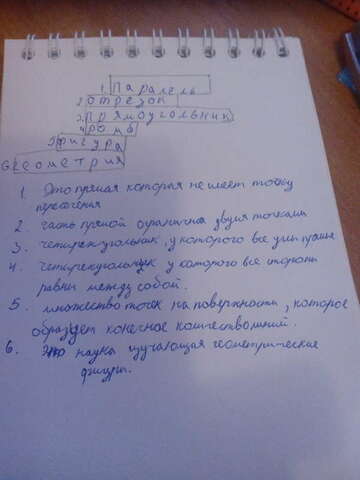 1. Паралель
2. Отрезок
3. Прямоугольник
4. Ромб
5. Фигура
6. Геометрия
1. Это прямая которая не имеет точку
пересечения
2. часть прямой ограничена двумя точками
3. четырехугольник, у которого все углы прямые
4. четырехугольник у которого все стороны
равны между собой.
5. множество точек на поверхности, которое
образует конечное количество линий.
6. Это наука изучающая геометрические
фигуры.